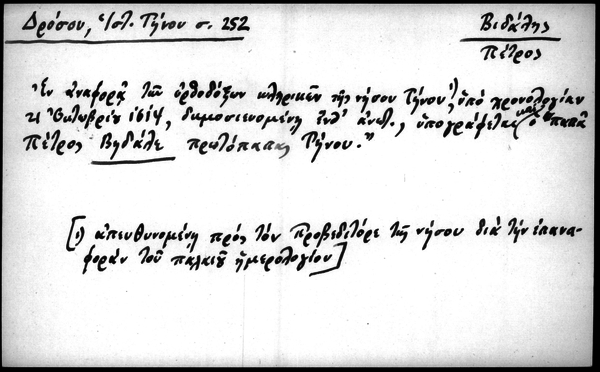 Δρόσου, Ἱστ. Τήνου σ. 252
Βιδάλης
Πέτρος
Ἐν ἀναφορᾷ τῶν ὀρθοδόξων κληρικῶν τῆς νήσου Τήνου¹⁾, ὑπὸ χρονολογίαν
21 Ὀκτωβρίου 1614, δημοσιευομένῃ ἔνθ' ἀνωτ., ὑπογράφεται καὶ ὁ "παπᾶ
Πέτρος Βηδάλε πρωτόπαπας Τήνου."
[1) ἀπευθυνομένη πρὸς τὸν Προβεδιτόρε τῆς νήσου διὰ τὴν ἐπανα-
φορὰν τοῦ παλαιοῦ ἡμερολογίου]